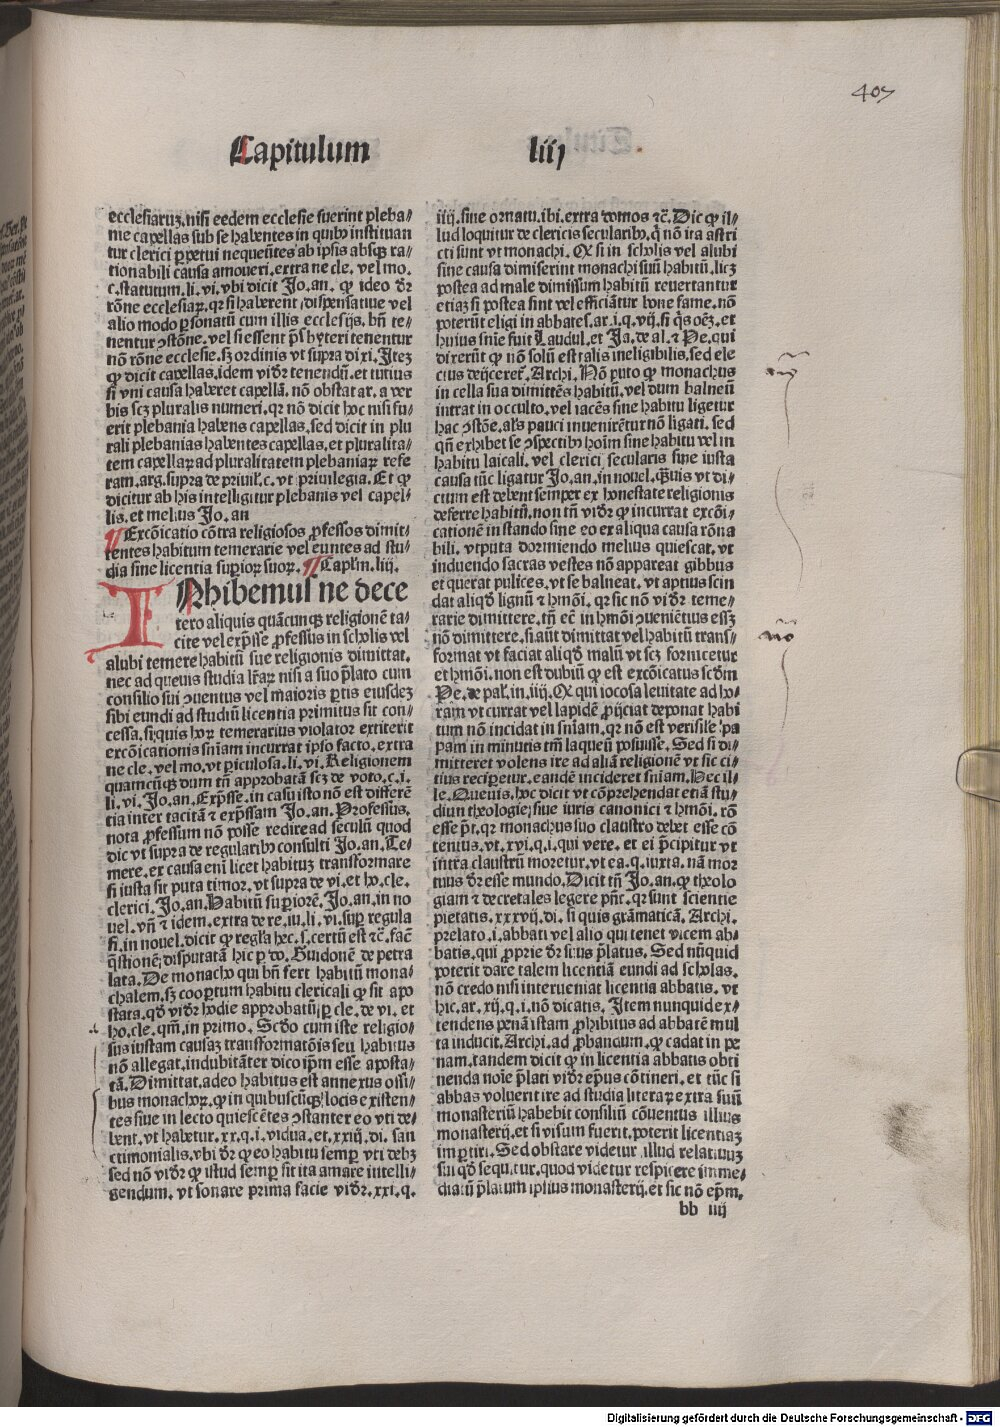 407
Capitulum liij
ecclesiaruz. nisi eedem ecclesie fuerint pleba⸗
nie capellas sub se habentes in quibꝰ instituan
tur clerici ꝑpetui nequeuntes ab ipsis absqꝫ ra⸗
tionabili causa amoueri. extra ne cle. vel mo.
c. statutum. li. vi. vbi dicit Jo. an. ꝙ ideo dr̄
rōne ecclesiaꝝ. qr si haberent dispensatiue vel
alio modo ꝑsonatū cum illis ecclesijs. bn̄ te⸗
nentur ↄstōne. vel si essent p̄sbyteri tenentur
nō rōne ecclesie. sꝫ ordinis vt supra di. xi. Itez
ꝙ dicit capellas. idem vidr̄ tenendū. et tutius
si vni causa haberet capellā. nō obstat ar. a ver
bis scꝫ pluralis numeri. qr nō dicit hoc nisi fu⸗
erit plebania habens capellas. sed dicit in plu
rali plebanias habentes capellas. et pluralita⸗
tem capellaꝝ ad pluralitatem plebaniaꝝ refe
ram. arg. supra de priuil̓. c. vt priuilegia. Et ꝙ
dicitur ab his intelligitur plebanis vel capel⸗
lis. et melius Jo. an
¶ Excōicatio cōtra religiosos ꝓfessos dimit⸗
tentes habitum temerarie vel euntes ad stu⸗
dia sine licentia suꝑioꝝ suoꝝ. ¶ Capl̓m. liij.
INhibemus ne dece
tero aliquis quācunqꝫ religionē ta⸗
cite vel exp̄sse ꝓfessus in scholis vel
alubi temere habitū sue religionis dimittat.
nec ad queuis studia lr̄aꝝ nisi a suo p̄lato cum
consilio sui ↄuentus vel maioris ꝑtis eiusdez
sibi eundi ad studiū licentia primitus sit con⸗
cessa. si quis hoꝝ temerarius violator extiterit
excōicationis sn̄iam incurrat ipso facto. extra
ne cle. vel mo. vt periculosa. li. vi. Religionem
quamcūqꝫ dum tn̄ approbatā scꝫ de voto. c. i.
li. vi. Jo. an. Exp̄sse. in casu isto nō est differē
tia inter tacitā ⁊ exp̄ssam Jo. an. Professus.
nota ꝓfessum nō posse redire ad seculū quod
dic vt supra de regularibꝰ consulti Jo. an. Te⸗
mere. ex causa eni̅ licet habituꝫ transformare
si iusta sit puta timor. vt supra de vi. et ho. cle.
clerici. Jo. an. Habitū suꝑiorē. Jo. an. in no
uel. vn̄ ⁊ idem. extra de re. iu. li. vi. suꝑ regula
fi. in nouel. dicit ꝙ regl̓a hec. s. certū est ⁊c̄. fac̄
q̄stionē disputatā hic ꝑ do. Guidonē de petra
lata. De monacho qui bn̄ fert habitū mona⸗
chalem. sꝫ cooꝑtum habitu clericali ꝙ sit apo
stata. qd̓ vidr̄ hodie approbatū ꝑ cle. de vi. et
ho. cle. qm̄. in primo. Scd̓o cum iste religio⸗
sus iustam causaꝫ transformatōis seu habitus
nō allegat. indubitāter dico ip̄m esse aposta⸗
tā. Dimittat. adeo habitus est annexus ossi⸗
bus monachoꝝ. ꝙ in quibuscūqꝫ locis existen⸗
tes siue in lecto quiescētes ↄstanter eo vti de⸗
bent. vt habetur. xx. q. i. vidua. et. xxiij. di. san
ctimonialis. vbi dr̄ ꝙ eo habitu semꝑ vti debꝫ
sed nō vidr̄ ꝙ istud semꝑ sit ita amare intelli⸗
gendum. vt sonare prima facie vidr̄. xxi. q.
iiij. sine ornatu. ibi. extra domos ⁊c̄. Dic ꝙ il⸗
lud loquitur de clericis secularibꝰ. q̄ nō ita astri
cti sunt vt monachi. Ex si in scholis vel alubi
sine causa dimiserint monachi suū habitū. licꝫ
postea ad male dimissum habitū reuertantur
etiaꝫ si postea sint vel efficiātur bone fame. nō
poterūt eligi in abbates. ar. i. q. vij. si q̄s oēꝫ. et
huius sn̄ie fuit Laudul. et Ja. de al. ⁊ Pe. qui
dixerūt ꝙ nō solū est talis ineligibilis. sed ele
ctus deijceret̄. Archi. Nō puto ꝙ monachus
in cella sua dimittēs habitū. vel dum balneū
intrat in occulto. vel iacēs sine habitu ligetur
hac ↄstōne. al̓s pauci inuenirētur nō ligati. sed
qn̄ exhibet se ↄspectibꝰ hoīm sine habitu vel in
habitu laicali. vel clerici secularis sine iusta
causa tūc ligatur Jo. an. in nouel. q̄uis vt di⸗
ctum est debent semper ex honestate religionis
deferre habitū. non tn̄ vidr̄ ꝙ incurrat excōi⸗
cationē in stando sine eo ex aliqua causa rōna
bili. vtputa dormiendo melius quiescat. vt
induendo sacras vestes nō appareat gibbus
et querat pulices. vt se balneat. vt aptius scin
dat aliqd̓ lignū ⁊ hmōi. qr sic nō vidr̄ teme⸗
rarie dimittere. tn̄ eē in hmōi ↄueniētius essꝫ
nō dimittere. si aūt dimittat vel habitū trans⸗
format vt faciat aliqd̓ malū vt scꝫ fornicetur
et hmōi. non est dubiū ꝙ est excōicatus scd̓m
Pe. de pal̓. in. iiij. Ex qui iocosa leuitate ad ho⸗
ram vt currat vel lapidē ꝓijciat deponat habi
tum nō incidat in sn̄iam. qr nō est verisil̓e pa
pam in minutis tm̄ laqueū posuisse. Sed si di⸗
mitteret volens ire ad aliā religionē vt sic ci⸗
tius reciperet̄. eandē incideret sn̄iam. Hec il⸗
le. Queuis. hoc dicit vt cōprehendat etiā stu⸗
dium theologie. siue iuris canonici ⁊ hmōi. rō
esse p̄t. qr monachus suo claustro debet esse cō
tentus. vt. xvi. q. i. qui vere. et ei p̄cipitur vt
intra claustrū moretur. vt ea. q. iuxta. nā mor
tuus dr̄ esse mundo. Dicit tn̄ Jo. an. ꝙ theolo
giam ⁊ decretales legere pn̄t. qr sunt scientie
pietatis. xxxvij. di. si quis grāmaticā. Archi.
prelato. i. abbati vel alio qui tenet vicem ab⸗
batis. qui ꝓprie dr̄ situs p̄latus. Sed nūquid
poterit dare talem licentiā eundi ad scholas.
nō credo nisi interueniat licentia abbatis. vt
hic. ar. xij. q. i. nō dicatis. Item nunquid ex⸗
tendens penā istam ꝓhibitus ad abbatē mul
ta inducit. Archi. ad ꝓbandum. ꝙ cadat in pe
nam. tandem dicit ꝙ in licentia abbatis obti
nenda noīe p̄lati vidr̄ ep̄us cōtineri. et tūc si
abbas voluerit ire ad studia literaꝝ extra suū
monasteriū habebit consiliū cōuentus illius
monasterij. et si visum fuerit. poterit licentiaꝫ
imꝑtiri. Sed obstare videtur illud relatiuuꝫ
sui qd̓ sequitur. quod videtur respicere imme⸗
diatū p̄latum ipsius monasterij. et sic nō ep̄m.
bb iiij
Digitalisierung gefördert durch die Deutsche Forschungsgemeinschaft - DFG